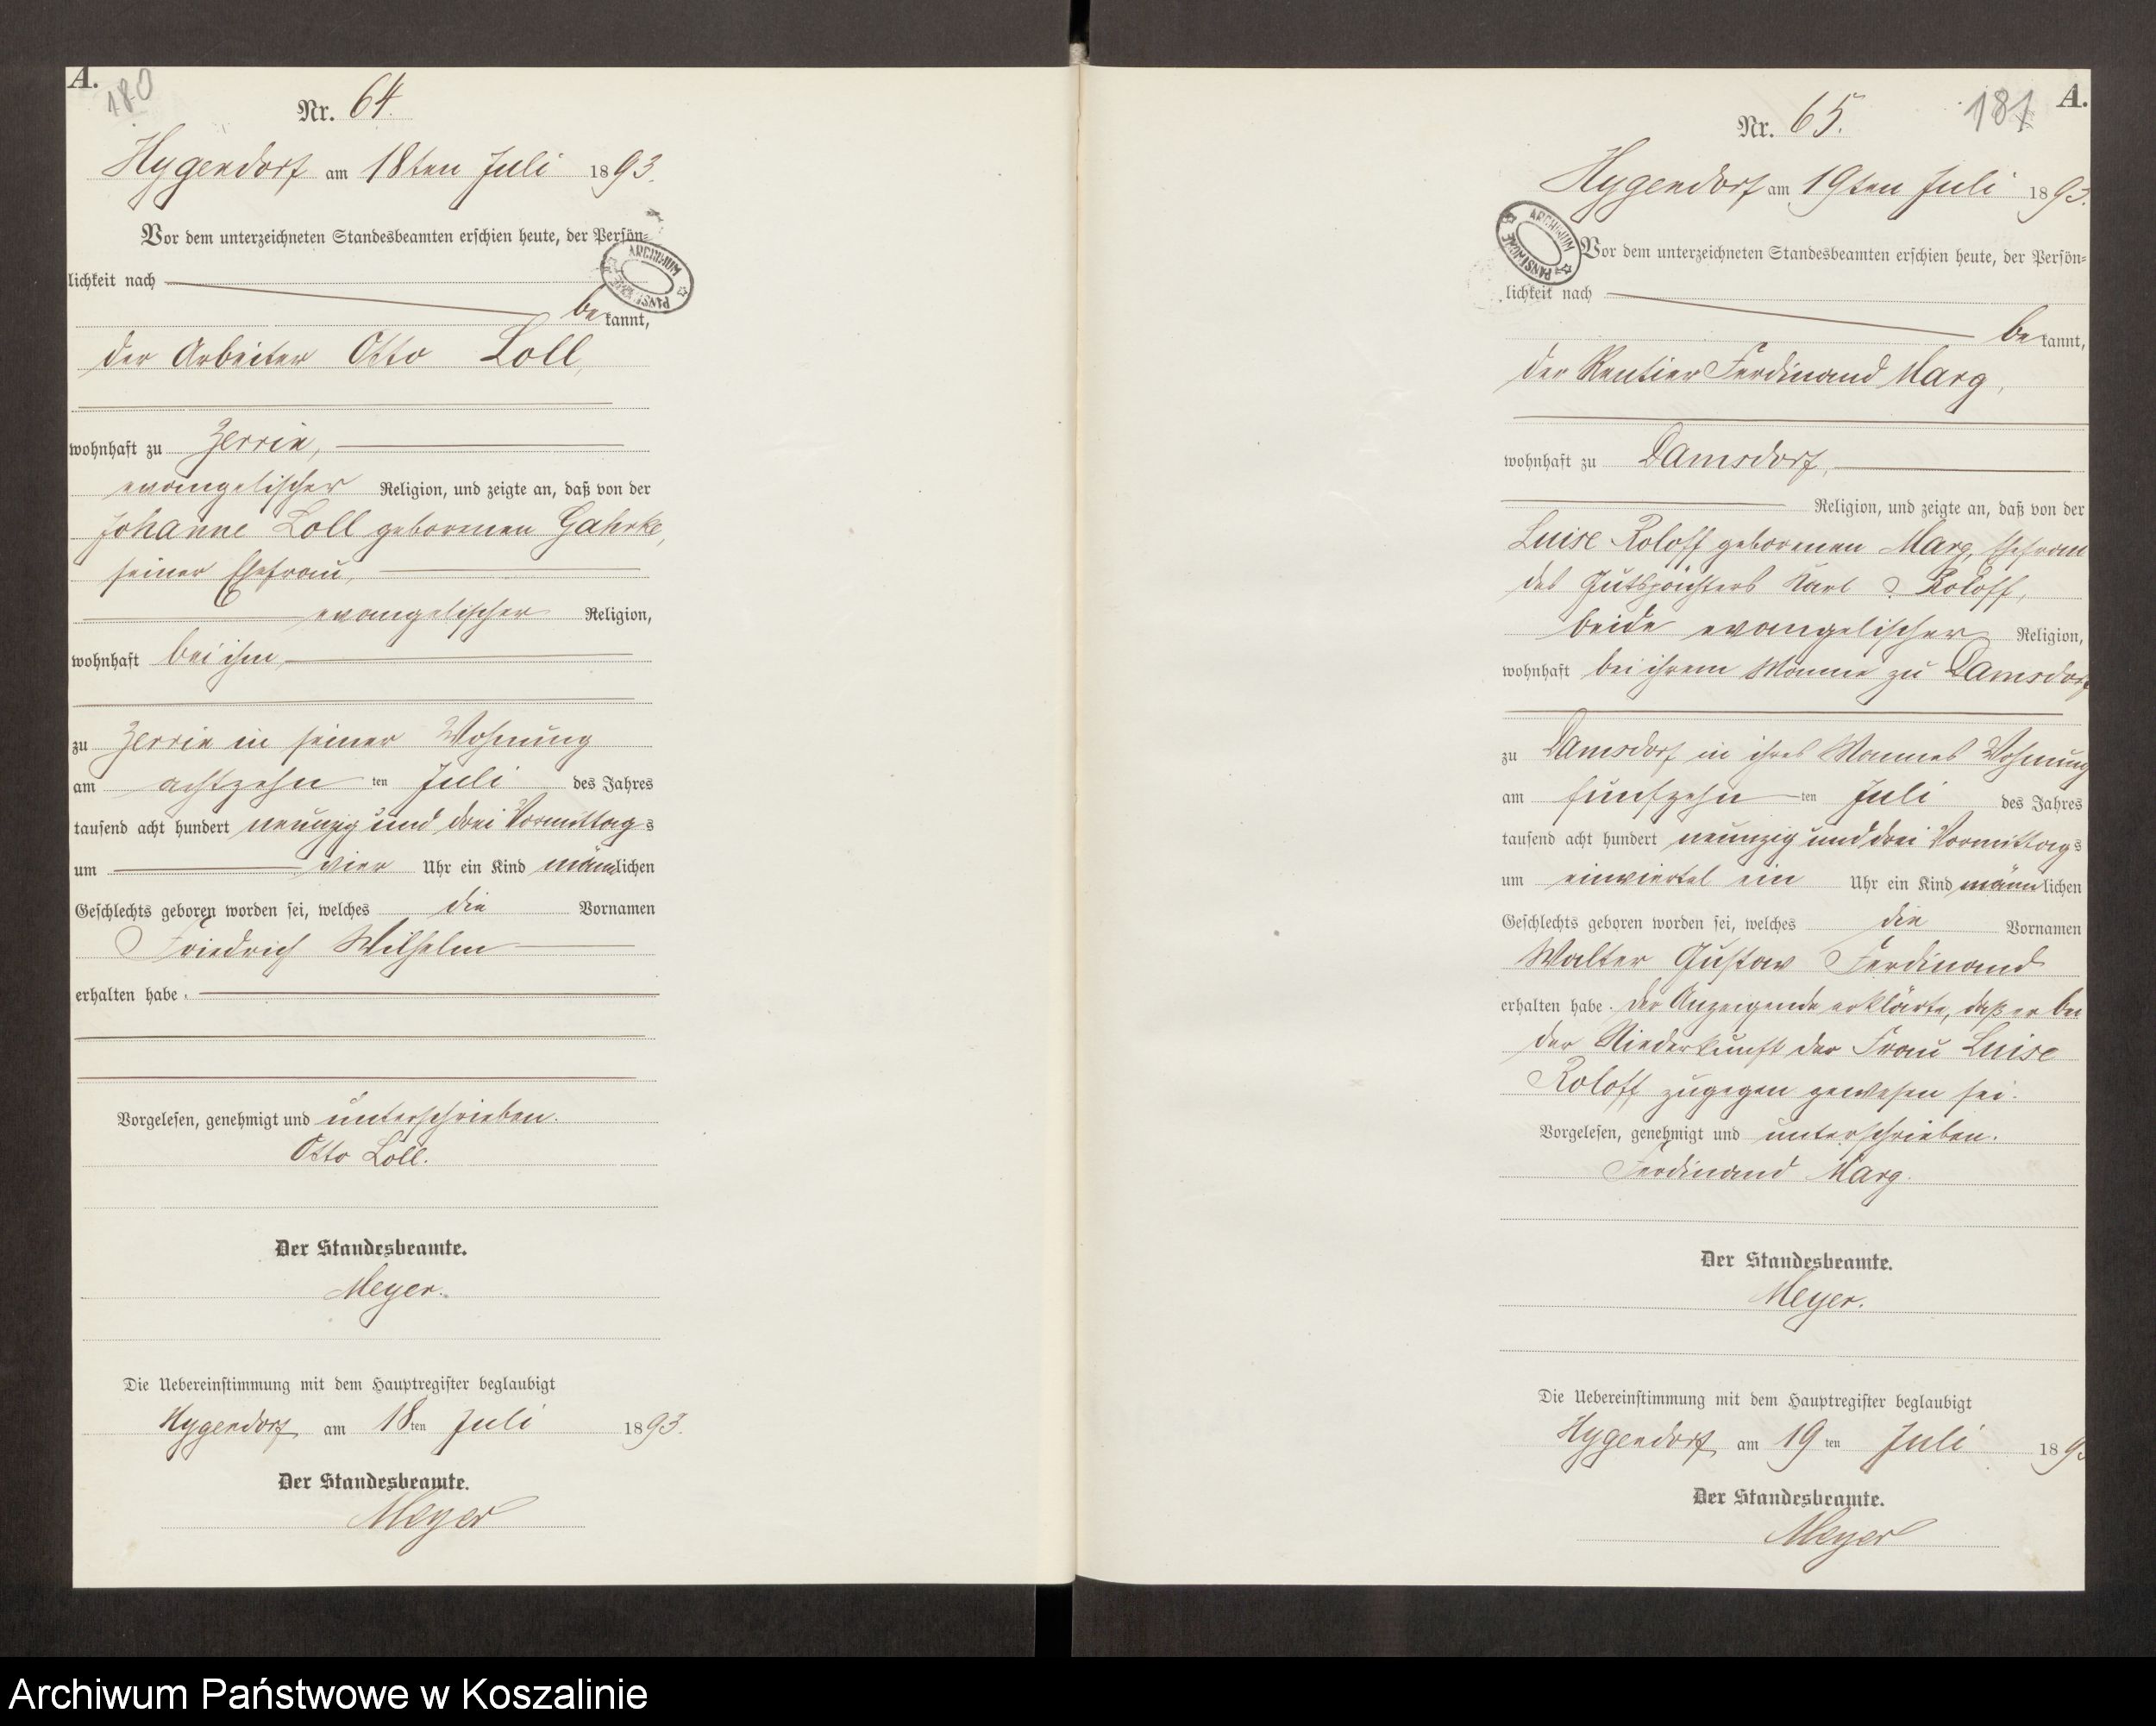 A.
180
Nr. 64.
Hygendorf am 18ten Juli 1893.
Vor dem unterzeichneten Standesbeamten erschien heute, der Persön-
lichkeit nach
bekannt,
der Arbeiter Otto Loll,
wohnhaft zu Zerrin,
evangelischer Religion, und zeigte an, daß von der
Johanne Loll geborenen Gahrke,
seiner Ehefrau,
evangelischer Religion,
wohnhaft bei ihm,
zu Zerrin in seiner Wohnung
am achtzehn ten Juli des Jahres
tausend acht hundert neunzig und drei Vormittags
um vier Uhr ein Kind männlichen
Geschlechts geboren worden sei, welches die Vornamen
Friedrich Wilhelm
erhalten habe.
Vorgelesen, genehmigt und unterschrieben.
Otto Loll.
Der Standesbeamte.
Meyer.
Die Uebereinstimmung mit dem Hauptregister beglaubigt
Hygendorf am 18ten Juli 1893.
Der Standesbeamte.
Meyer
ARCHIWUM PAŃSTWOWE
181
A.
Nr. 65.
Hygendorf am 19ten Juli 1893.
ARCHIWUM PAŃSTWOWE
Vor dem unterzeichneten Standesbeamten erschien heute, der Persön-
lichkeit nach
bekannt,
der Rentier Ferdinand Marg,
wohnhaft zu Damsdorf,
Religion, und zeigte an, daß von der
Luise Roloff geborenen Marg, Ehefrau
des Gutspächters Karl Roloff,
beide evangelischer Religion,
wohnhaft bei ihrem Manne zu Damsdorf
zu Damsdorf in ihres Mannes Wohnung
am fünfzehn ten Juli des Jahres
tausend acht hundert neunzig und drei Vormittags
um einviertel ein Uhr ein Kind männlichen
Geschlechts geboren worden sei, welches die Vornamen
Walter Gustav Ferdinand
erhalten habe. Der Anzeigende erklärte, daß er bei
der Niederkunft der Frau Luise
Roloff zugegen gewesen sei.
Vorgelesen, genehmigt und unterschrieben.
Ferdinand Marg.
Der Standesbeamte.
Meyer.
Die Uebereinstimmung mit dem Hauptregister beglaubigt
Hygendorf am 19 ten Juli 1893
Der Standesbeamte.
Meyer
Archiwum Państwowe w Koszalinie